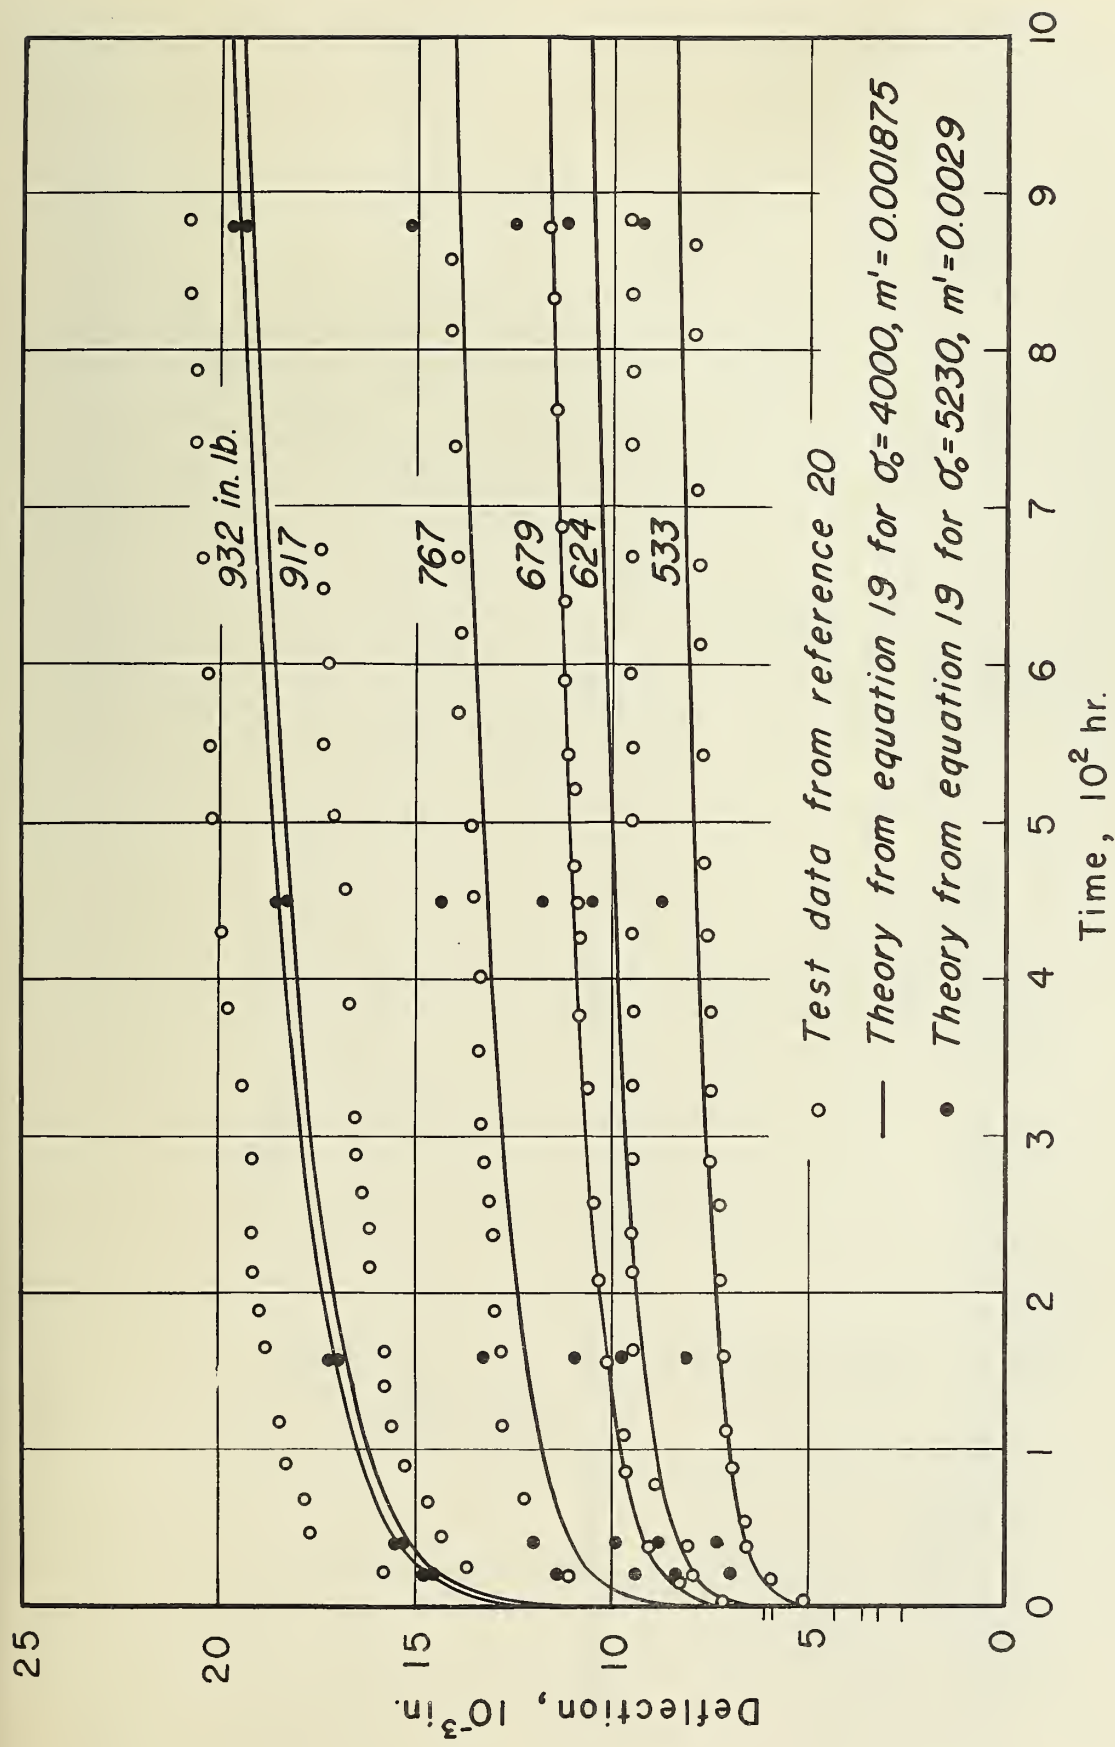 25
20
15
10
5
0
Deflection, 10⁻³ in.
932 in. lb.
917
767
679
624
533
○ Test data from reference 20
— Theory from equation 19 for σ₀= 4000, m' = 0.001875
● Theory from equation 19 for σ₀= 5230, m' = 0.0029
0 1 2 3 4 5 6 7 8 9 10
Time, 10² hr.